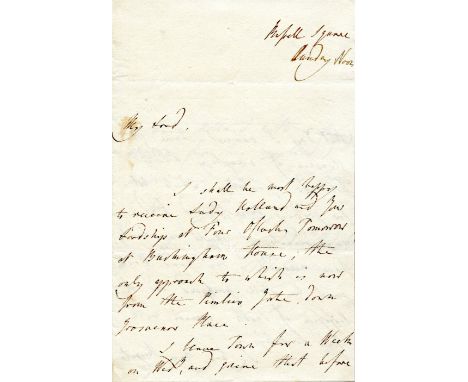 Russell Square
Sunday Noon
My Lord,
I shall be most happy
to receive Lady Holland and Your
Lordships at Four O'Clock Tomorrow
at Buckingham House, the
only approach to which is now
from the Pimlico Gate, down
Grosvenor Place.
I leave Town for a Week
on Wed.y and grieve that before